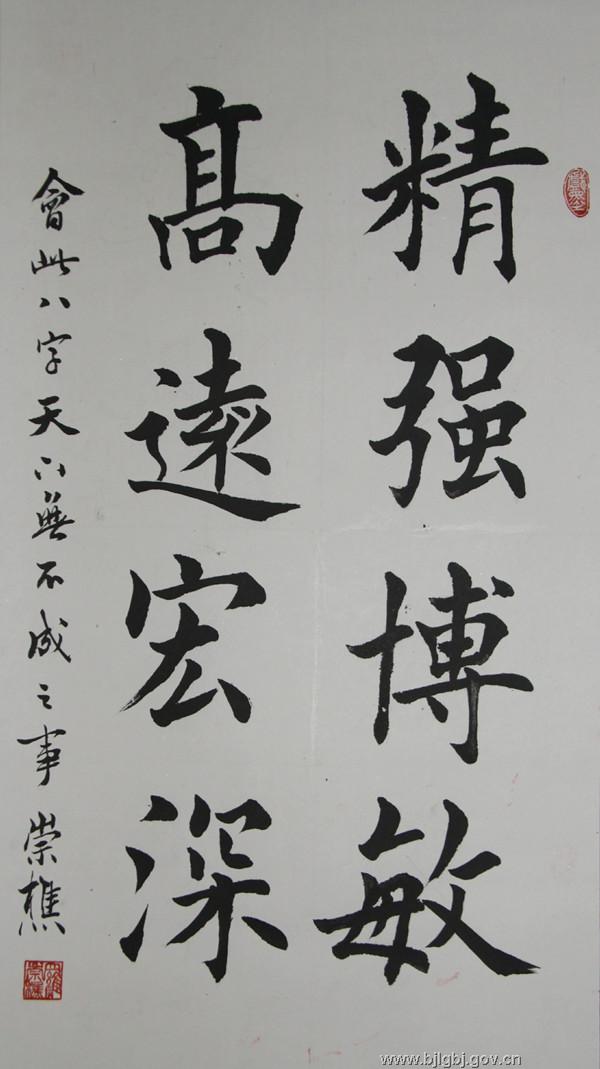 精强博敏
高遠宏深
會此八字天下無不成之事 崇樵
www.bjlgbj.gov.cn